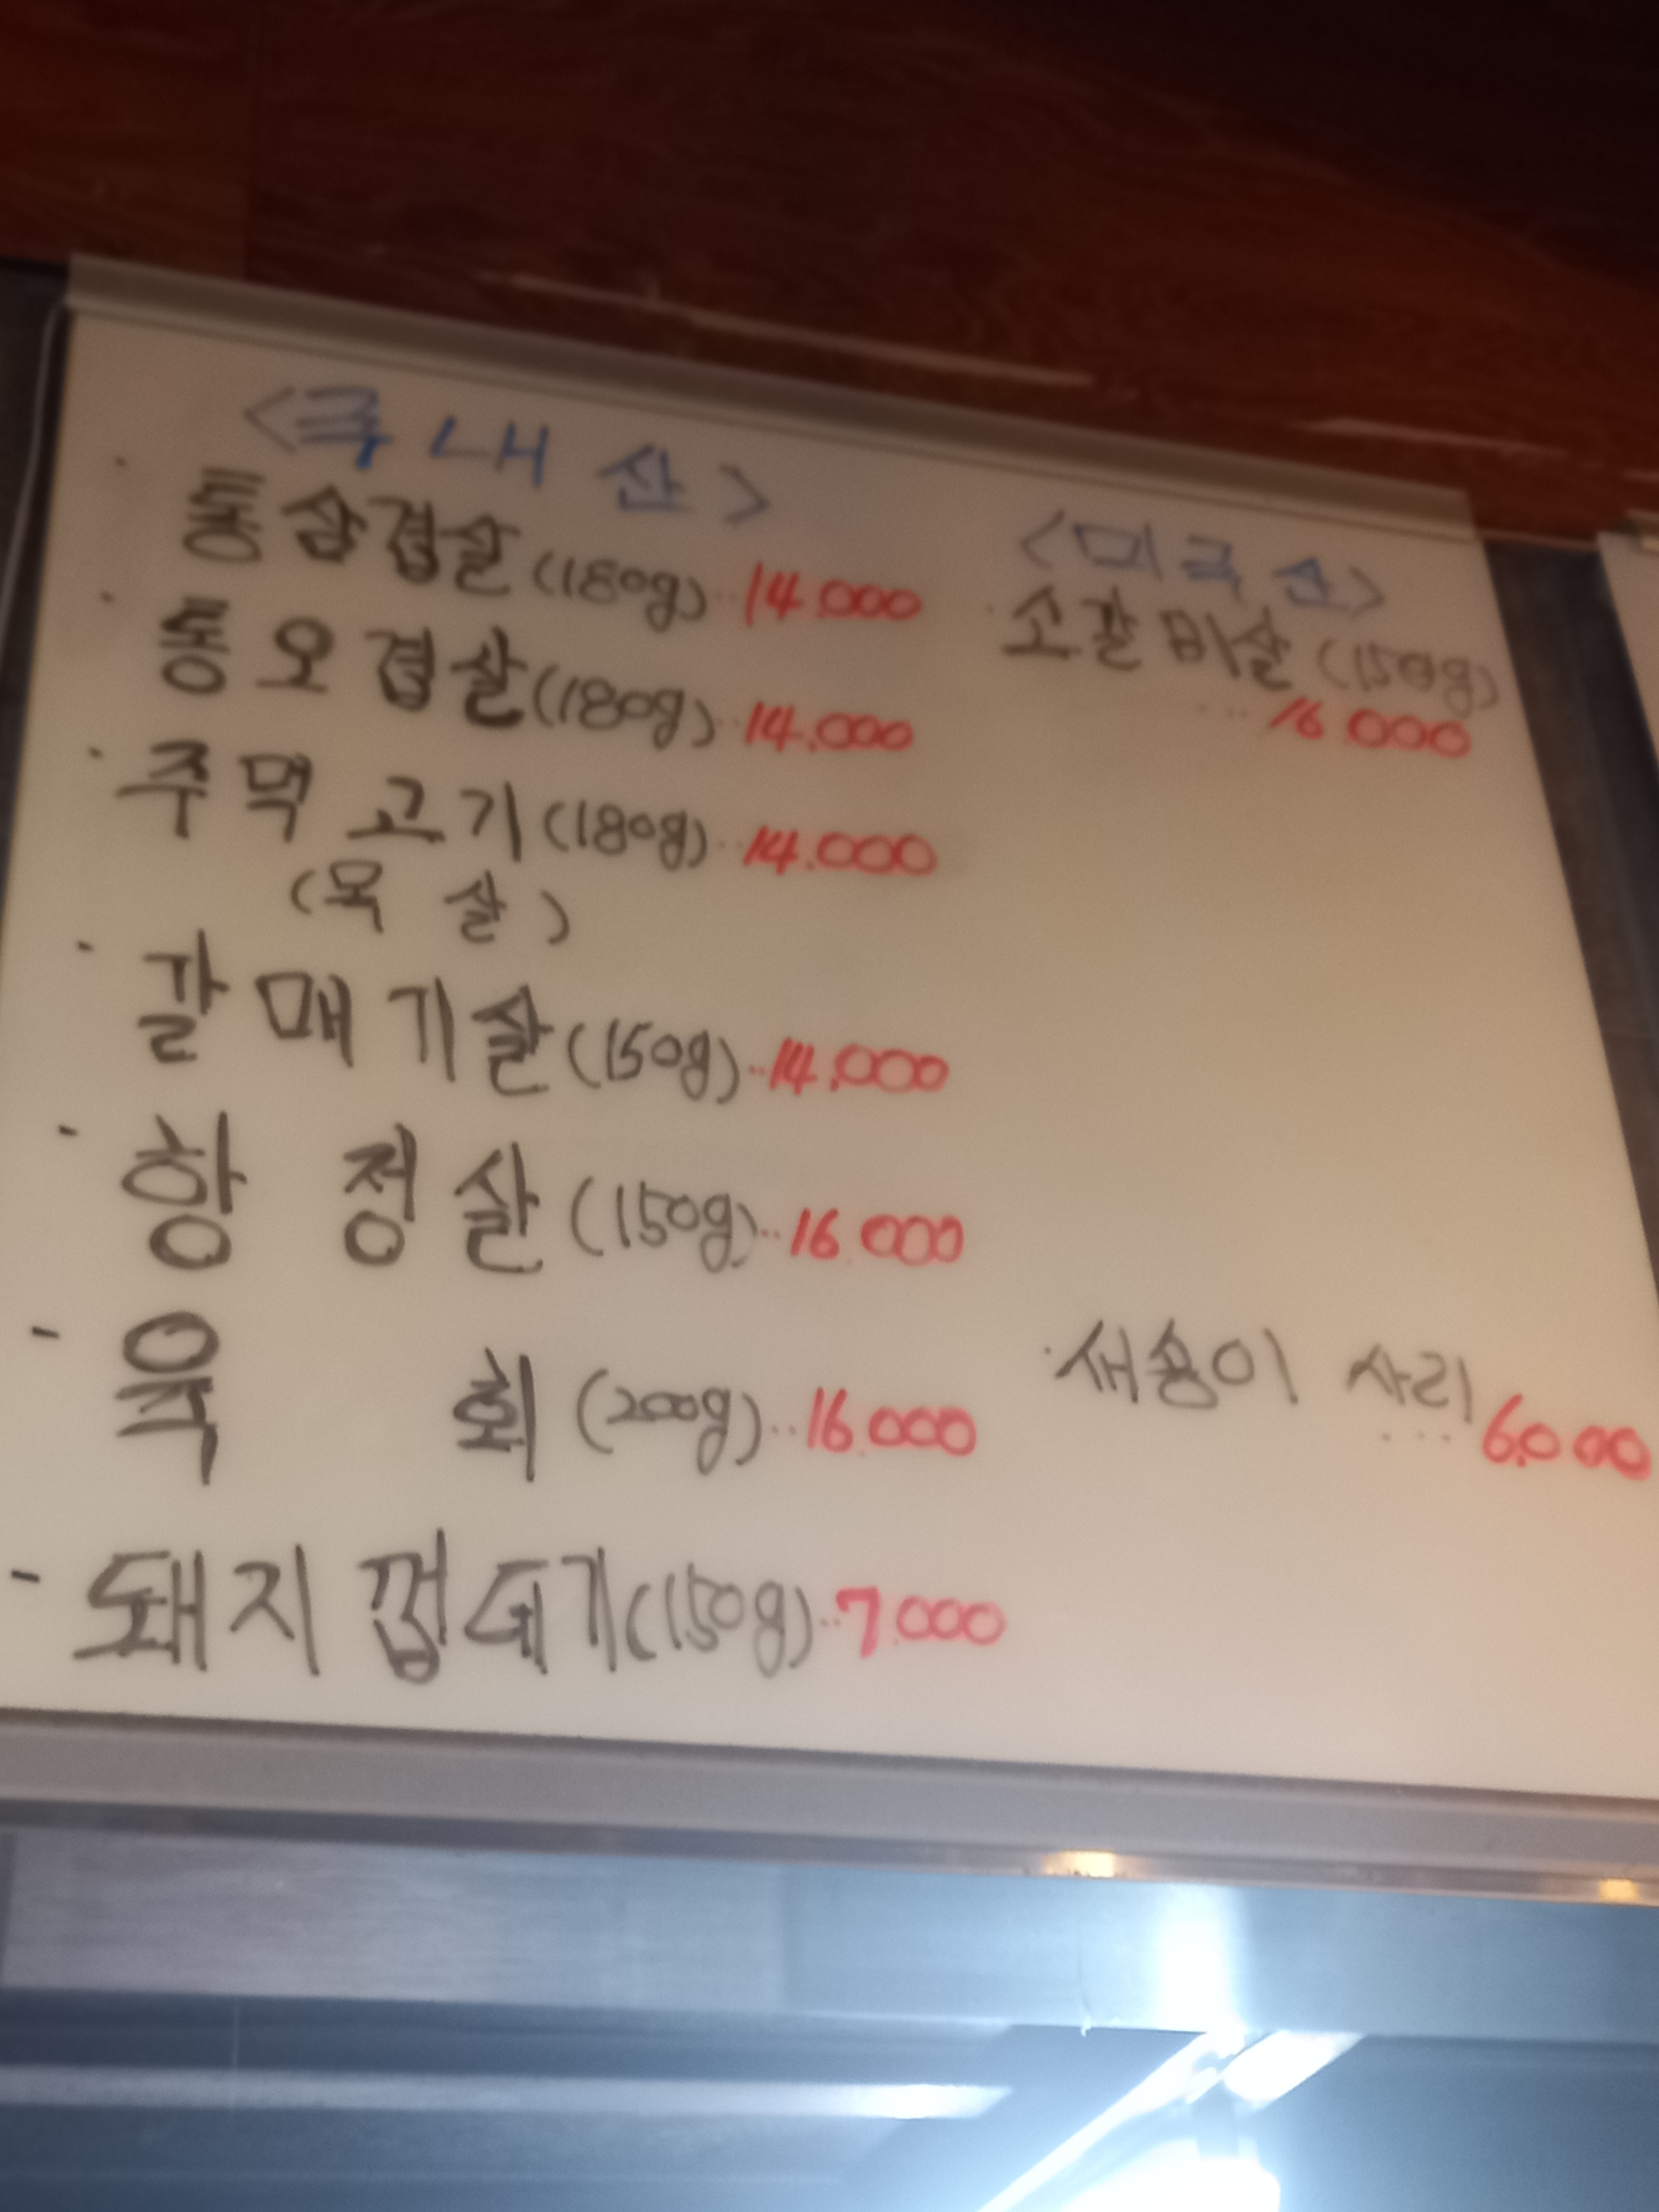 <국내산>
· 통삼겹살(180g)..14.000
· 통오겹살(180g)..14.000
· 주먹고기(180g)..14.000
(목살)
· 갈매기살(150g)..14.000
· 항정살(150g)..16.000
- 육회(200g)..16.000
- 돼지껍데기(150g)..7.000
<미국산>
· 소갈비살(150g)
...16.000
· 새송이 사리
...6.000